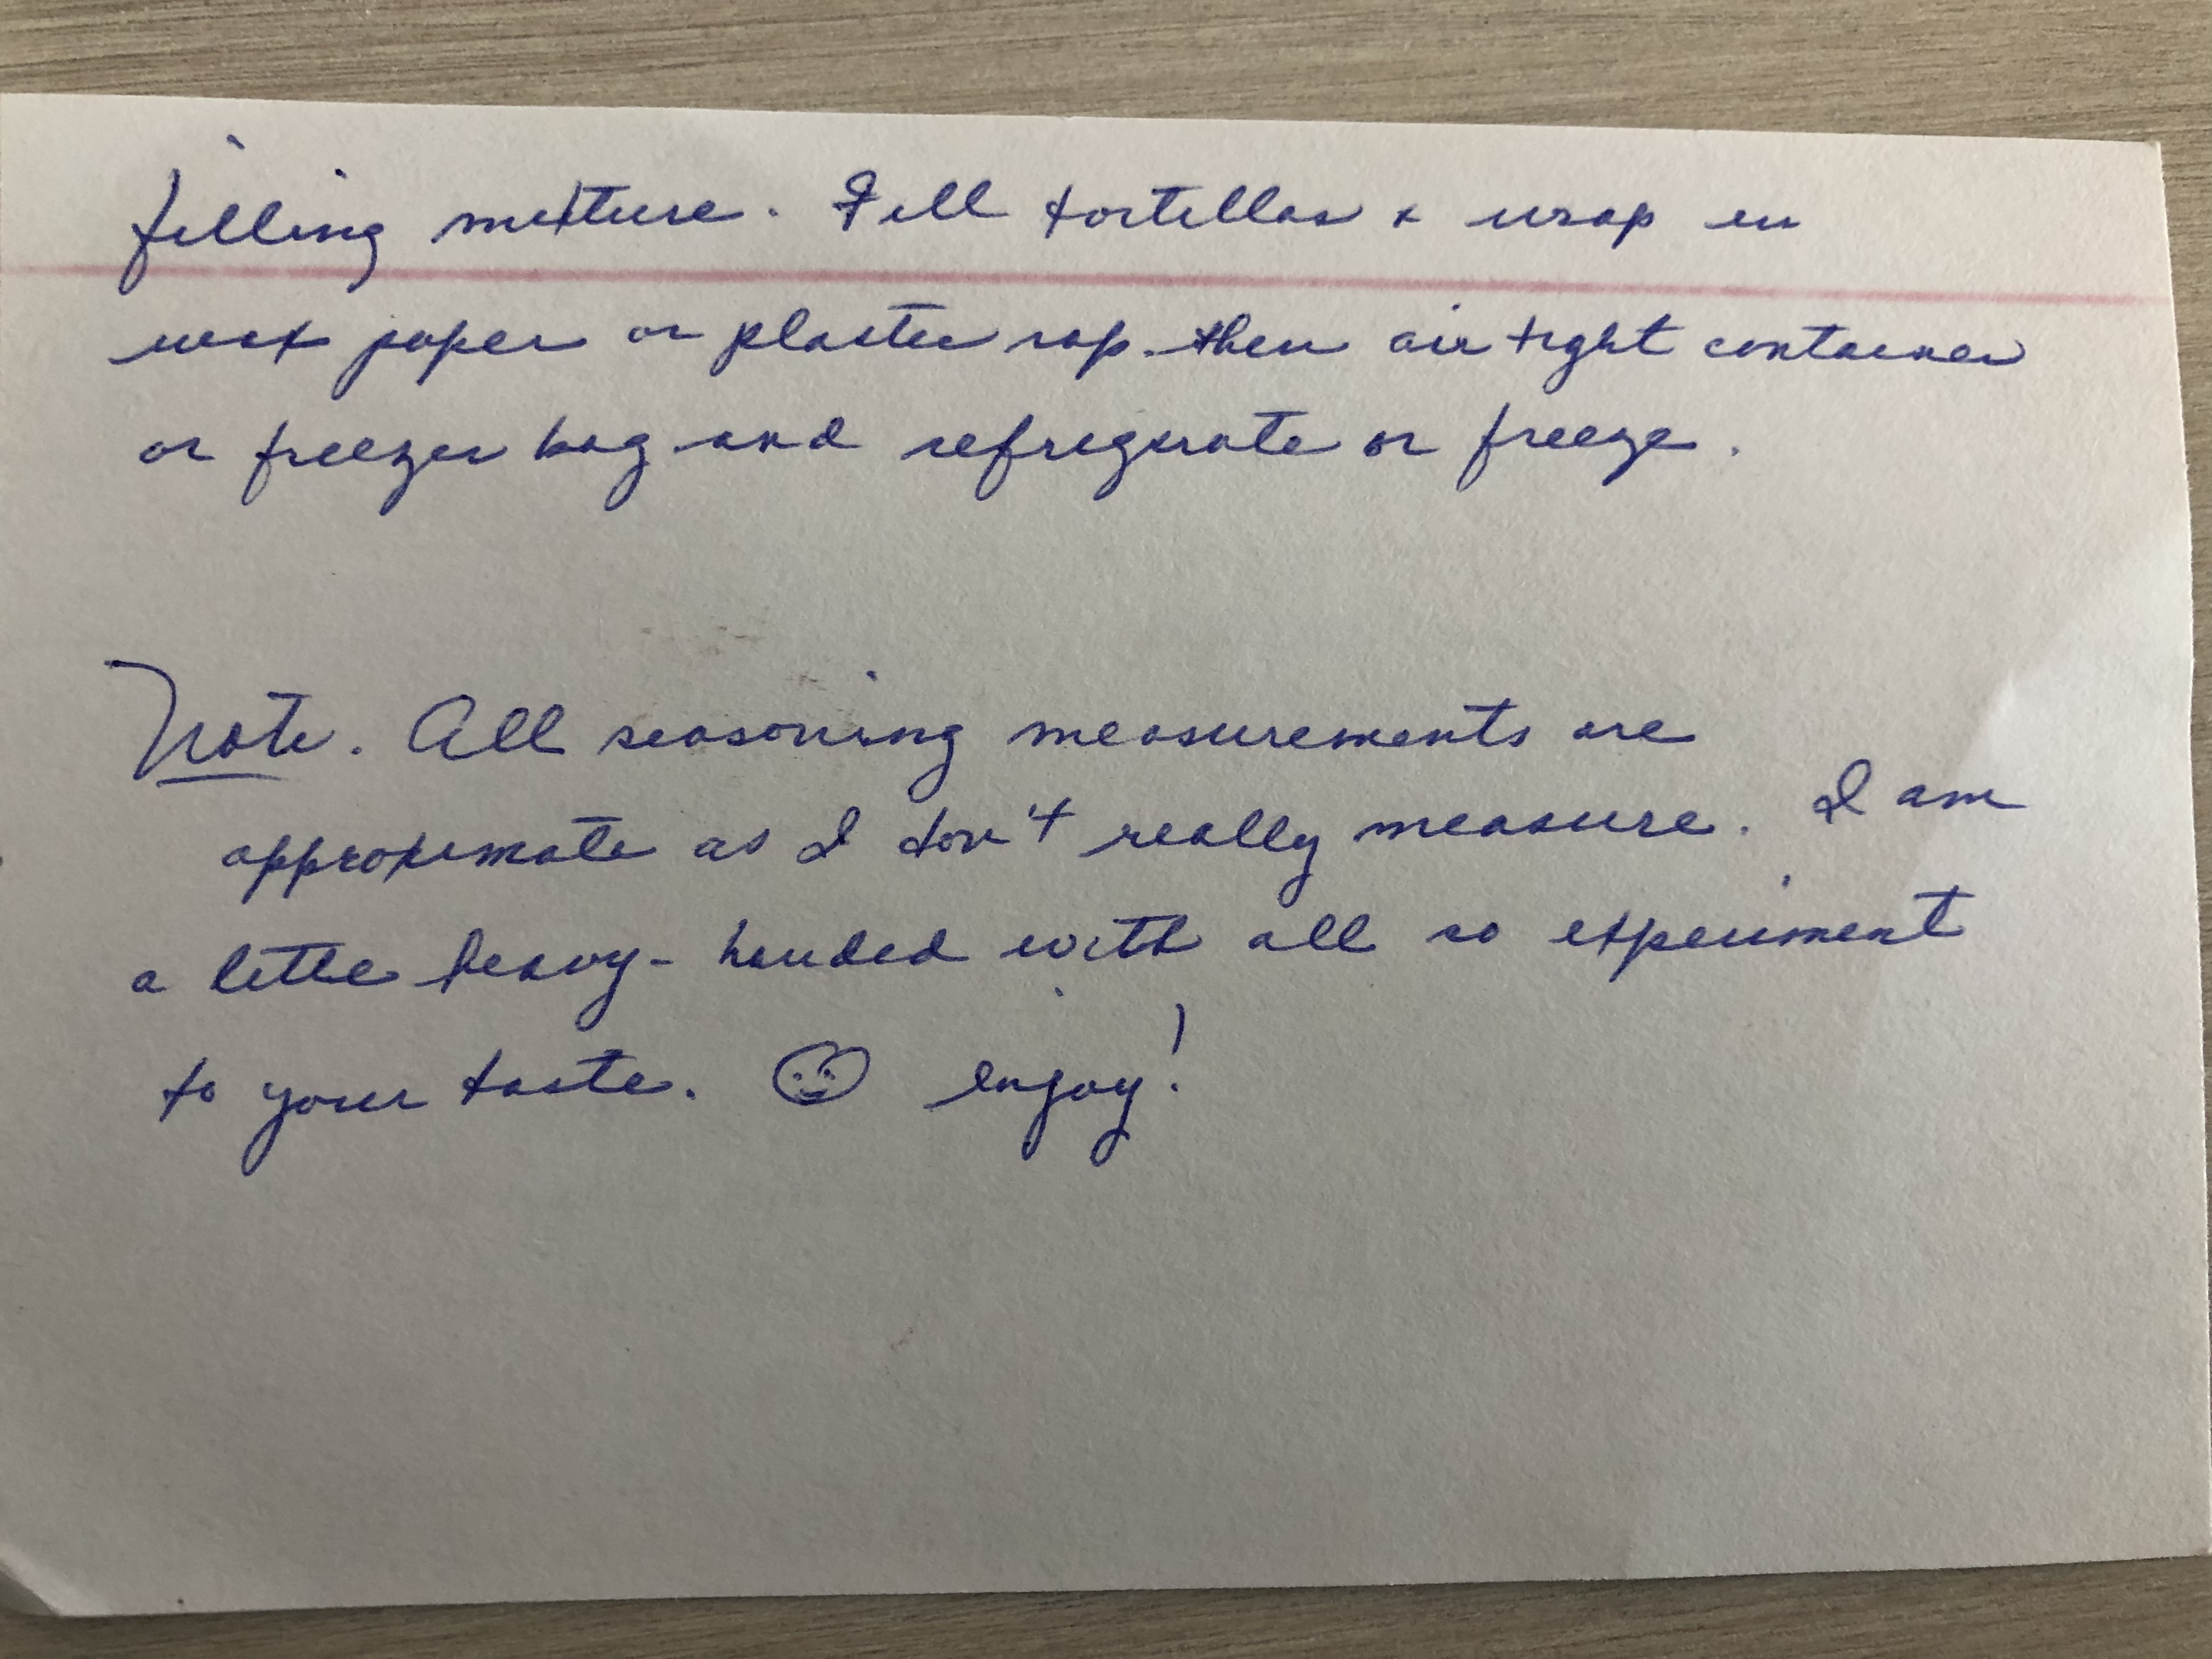 filling mixture. Fill tortillas & wrap in
wax paper or plastic rap. then air tight container
or freezer bag and refrigerate or freeze.
Note. All seasoning measurements are
approximate as I don't really measure. I am
a little heavy-handed with all so experiment
to your taste. ☺ enjoy!